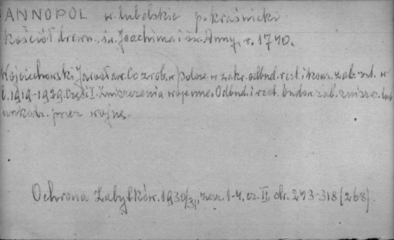 ANNOPOL w. lubelskie p. kraśnicki
Kościół drewn. św. Joachima i św. Anny, r. 1740.
Wojciechowski Jarosław. Co zrob. w Polsce w zakr. odbud. rest. i kons. zab. szt. w
l. 1919-1929. Część I. Zniszczenia wojenne. Odbud. i rest. budow. zab. zniszcz. lub
uszkodz. przez wojnę.
Ochrona Zabytków. 1930/31, zesz. 1-4, cz. II, str. 273-318 (268).